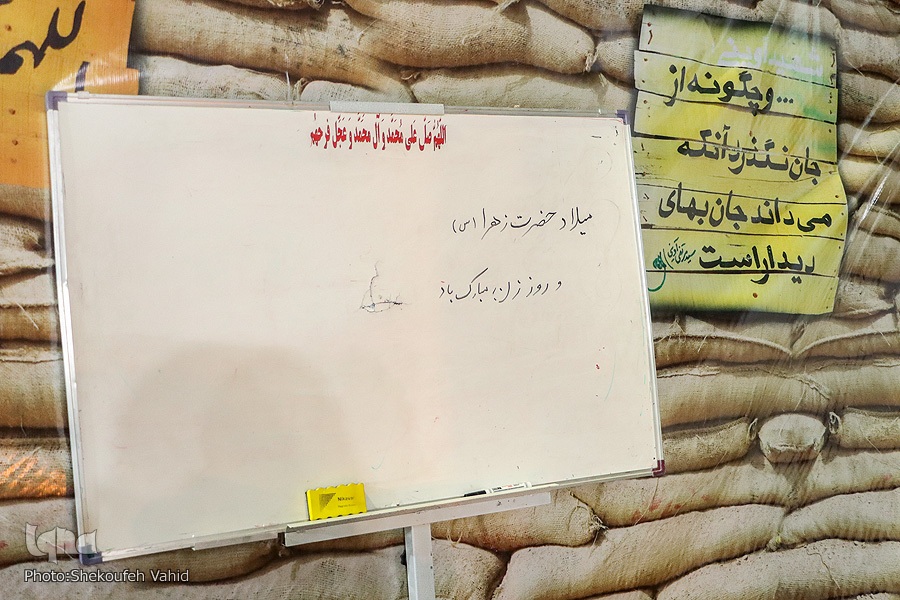 اللهم
اللّهُمَّ صَلِّ عَلی مُحَمَّد وَ آلِ مُحَمَّد وَ عَجِّل فَرَجَهُم
میلاد حضرت زهرا (س)
و روز زن، مبارک باد
...و چگونه از
جان نگذرد آنکه
می داند جان بهای
دیدار است
سید مرتضی آوینی
Nikoo
Photo:Shekoufeh Vahid